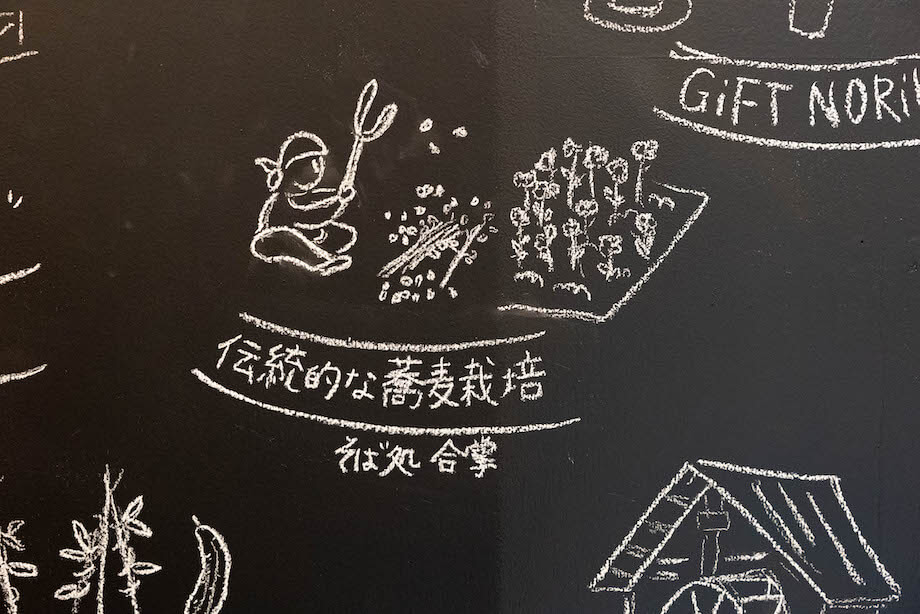 GiFT NORi
伝統的な蕎麦栽培
そば処 合掌